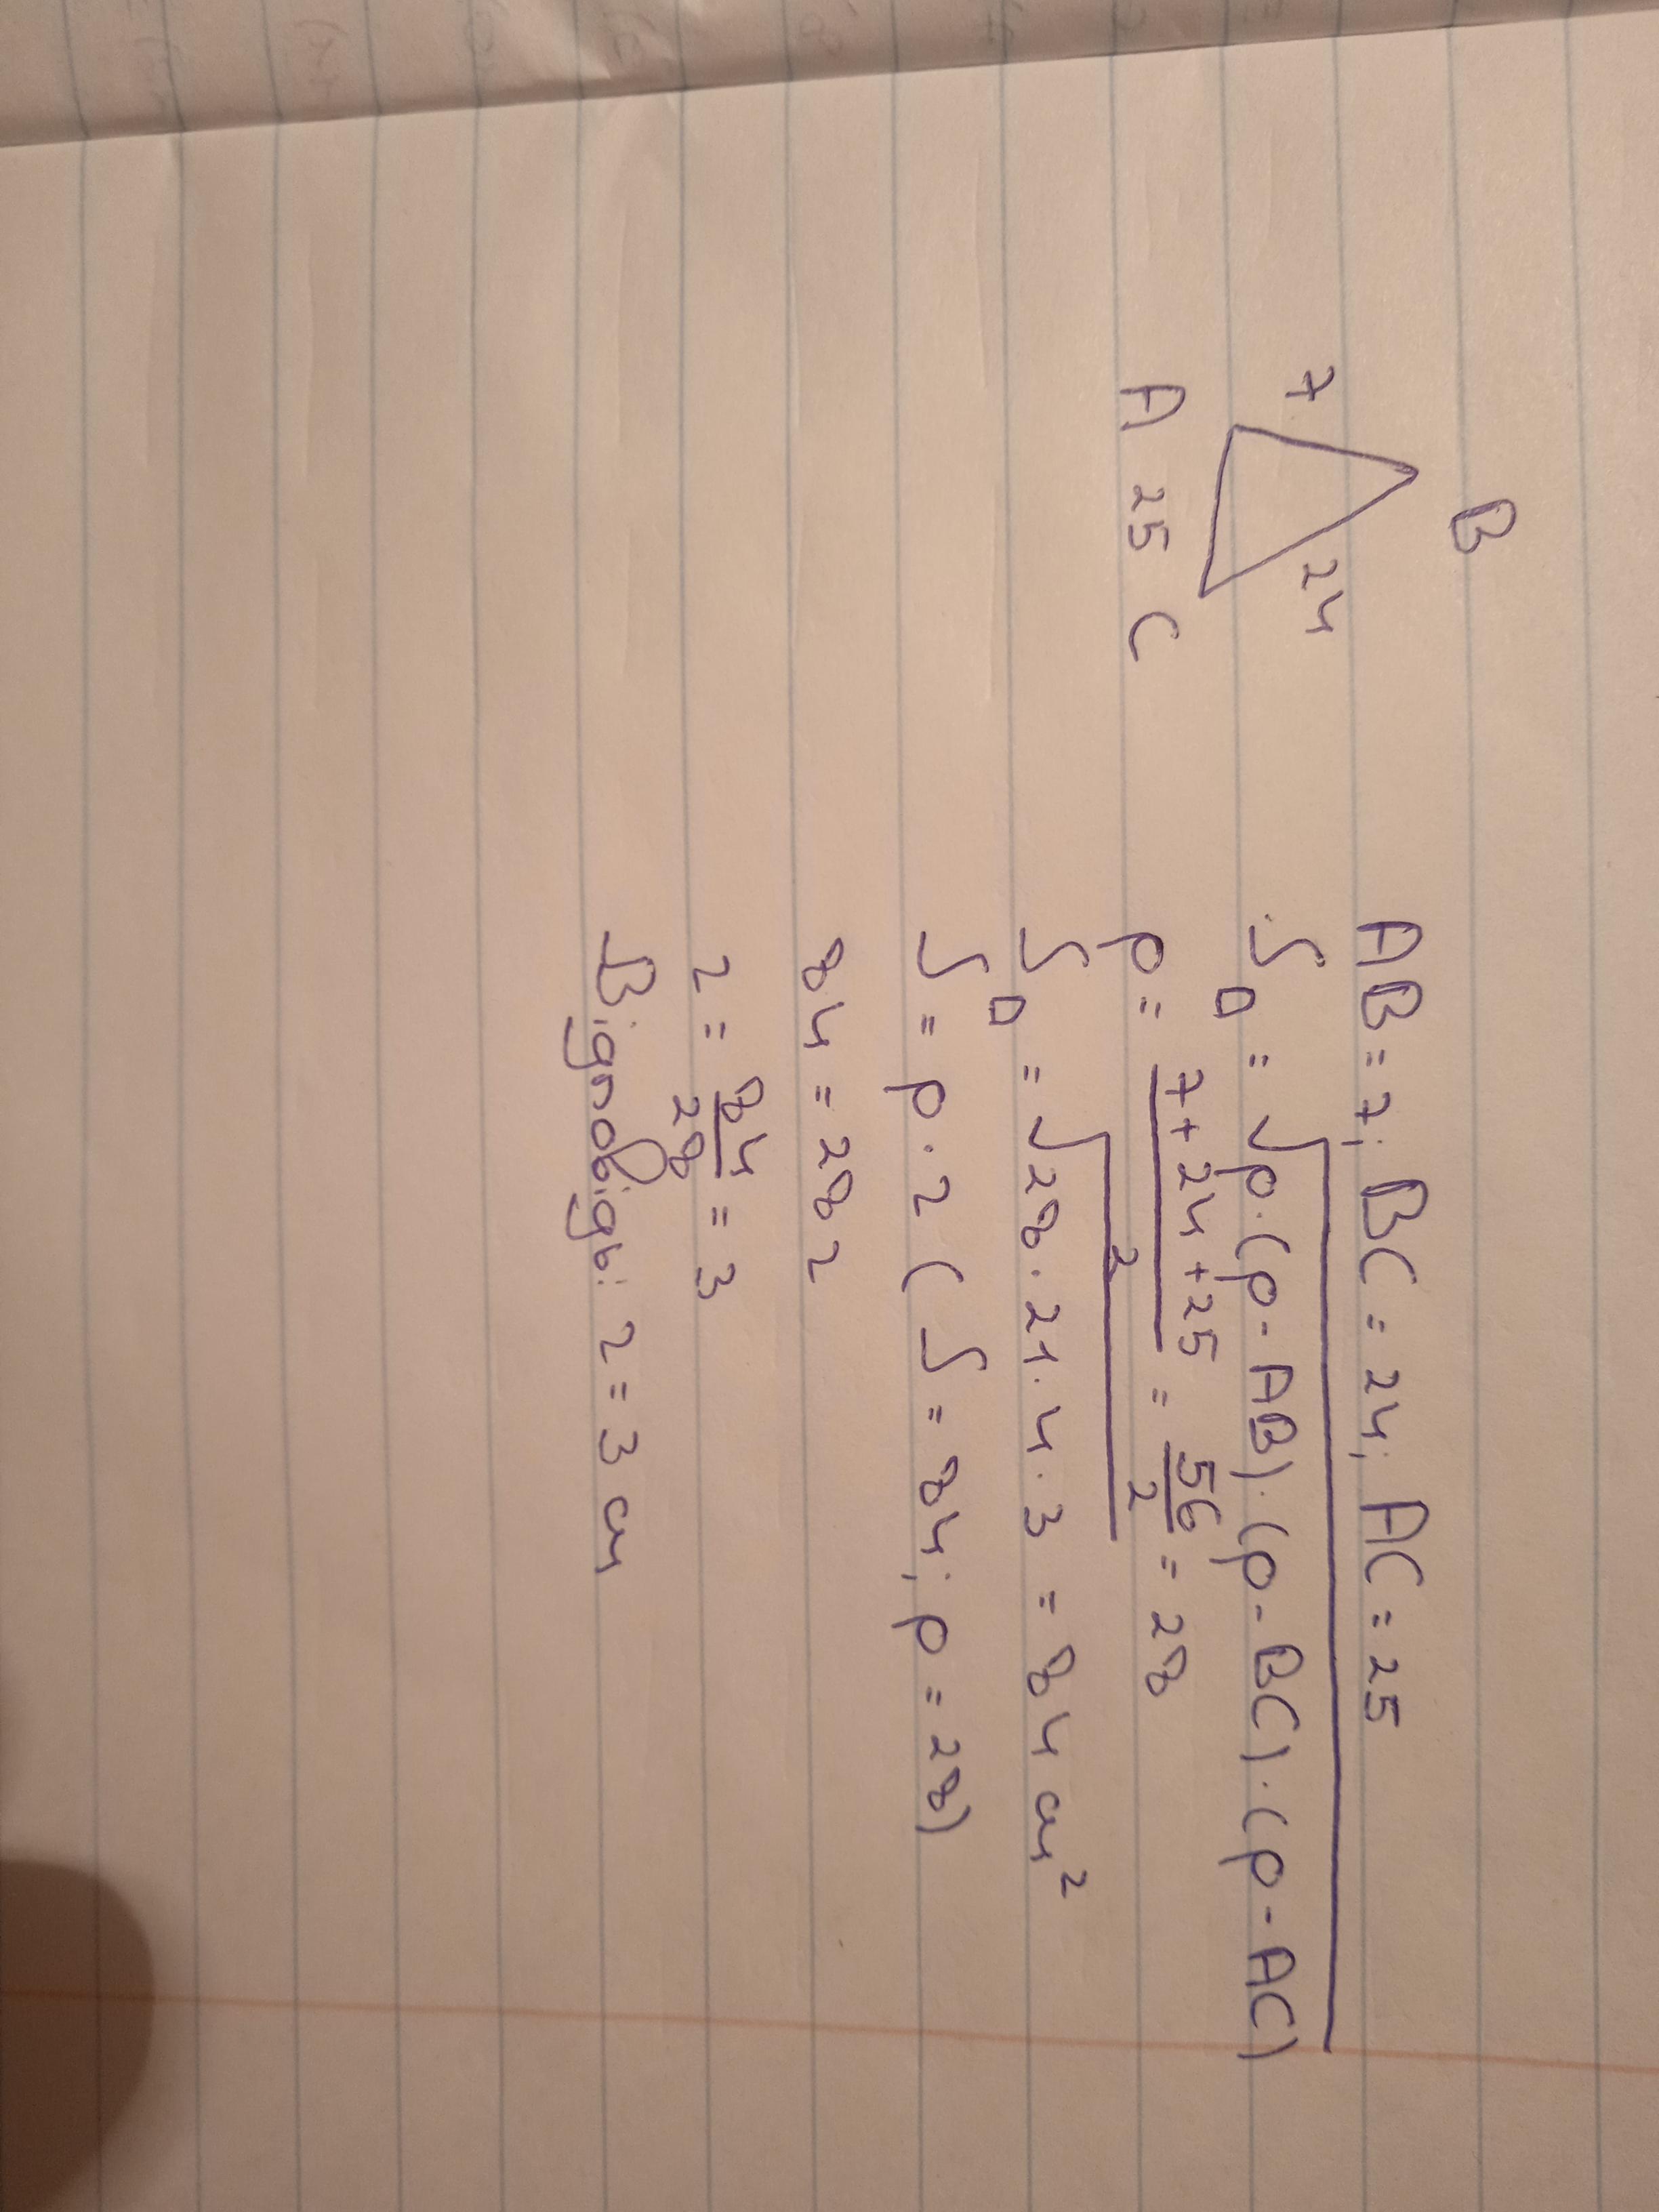 B
7
24
A 25 C
AB = 7; BC = 24; AC = 25
S△ = √p·(p-AB)·(p-BC)·(p-AC)
p = 7+24+25/2 = 56/2 = 28
S△ = √28·21·4·3 = 84 см²
S = p·r (S = 84; p = 28)
84 = 28 r
r = 84/28 = 3
Відповідь: r = 3 см